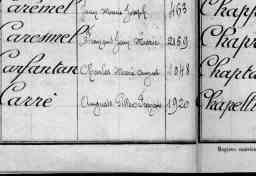 Carémel Jean Marie Joseph 463 Chapp
Caresmel François Jean Marie 2159 Chapr
Carfantan Charles Marie Ange 2048 Chapta
Carré Auguste Gilles François 1920 Chapelli